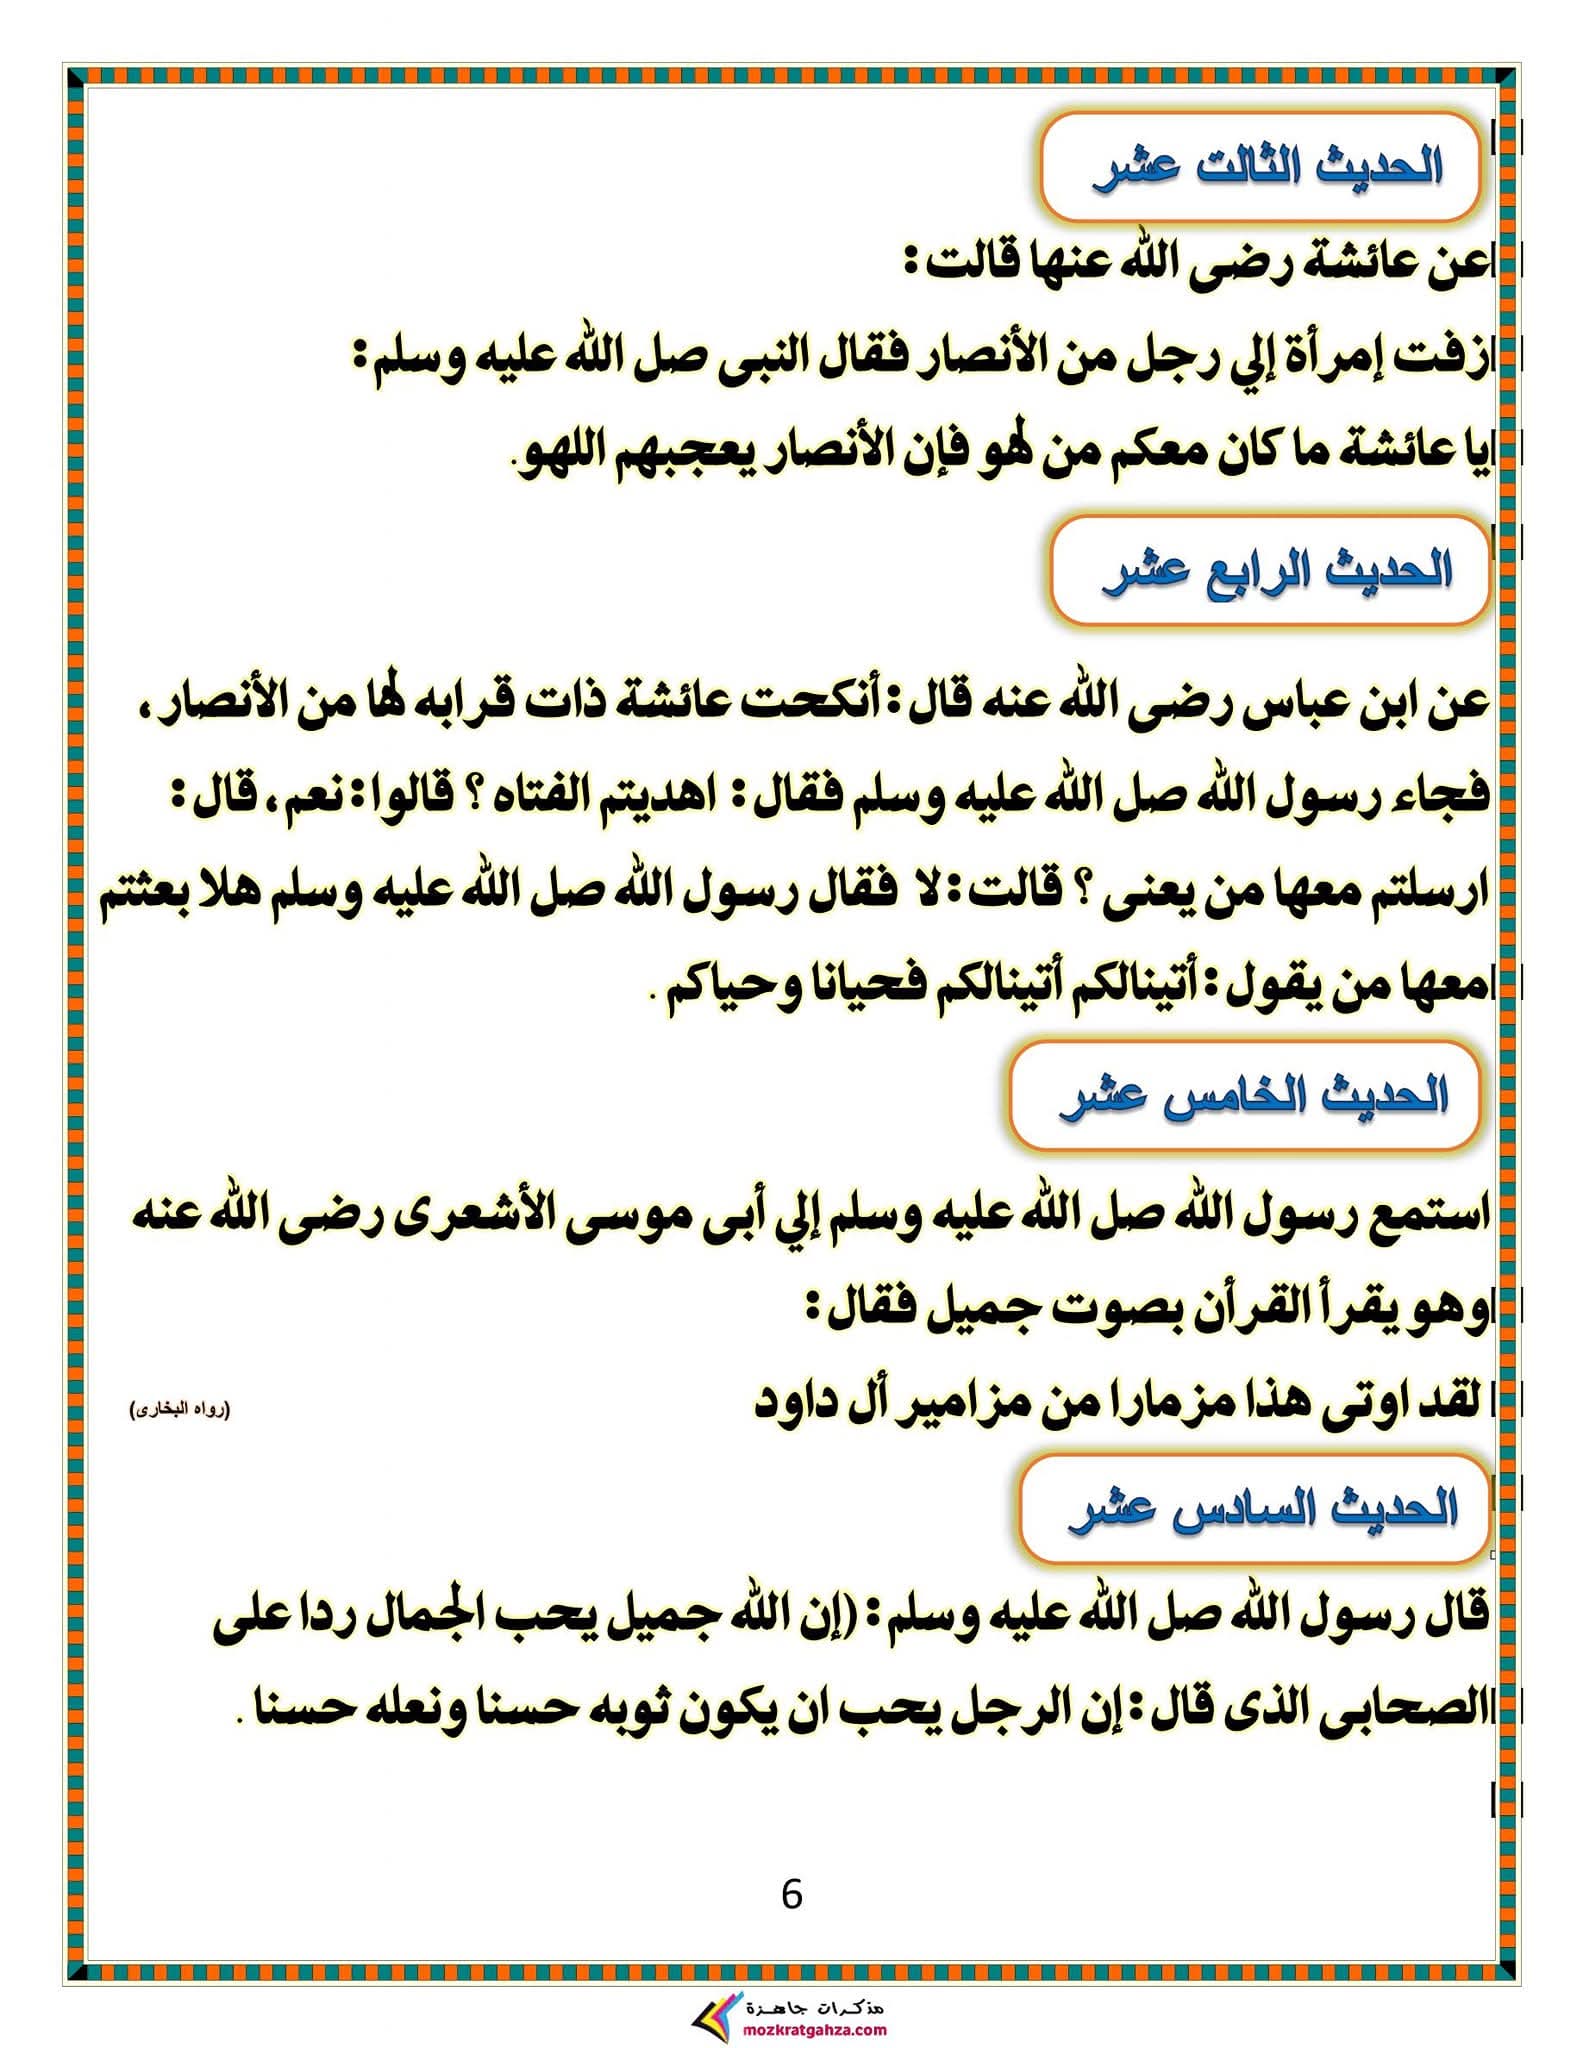 الحديث الثالت عشر
عن عائشة رضى الله عنها قالت:
زفت إمرأة إلي رجل من الأنصار فقال النبى صل الله عليه وسلم:
يا عائشة ما كان معكم من لهو فإن الأنصار يعجبهم اللهو.
الحديث الرابع عشر
عن ابن عباس رضى الله عنه قال:أنكحت عائشة ذات قرابه لها من الأنصار،
فجاء رسول الله صل الله عليه وسلم فقال: اهديتم الفتاه ؟ قالوا:نعم، قال:
ارسلتم معها من يعنى ؟ قالت:لا فقال رسول الله صل الله عليه وسلم هلا بعثتم
معها من يقول:أتينالكم أتينالكم فحيانا وحياكم .
الحديث الخامس عشر
استمع رسول الله صل الله عليه وسلم إلي أبى موسى الأشعرى رضى الله عنه
وهو يقرأ القرأن بصوت جميل فقال:
لقد اوتى هذا مزمارا من مزامير أل داود (رواه البخارى)
الحديث السادس عشر
قال رسول الله صل الله عليه وسلم:(إن الله جميل يحب الجمال ردا على
الصحابى الذى قال:إن الرجل يحب ان يكون ثوبه حسنا ونعله حسنا .
6
مذكرات جاهزة
mozkratgahza.com